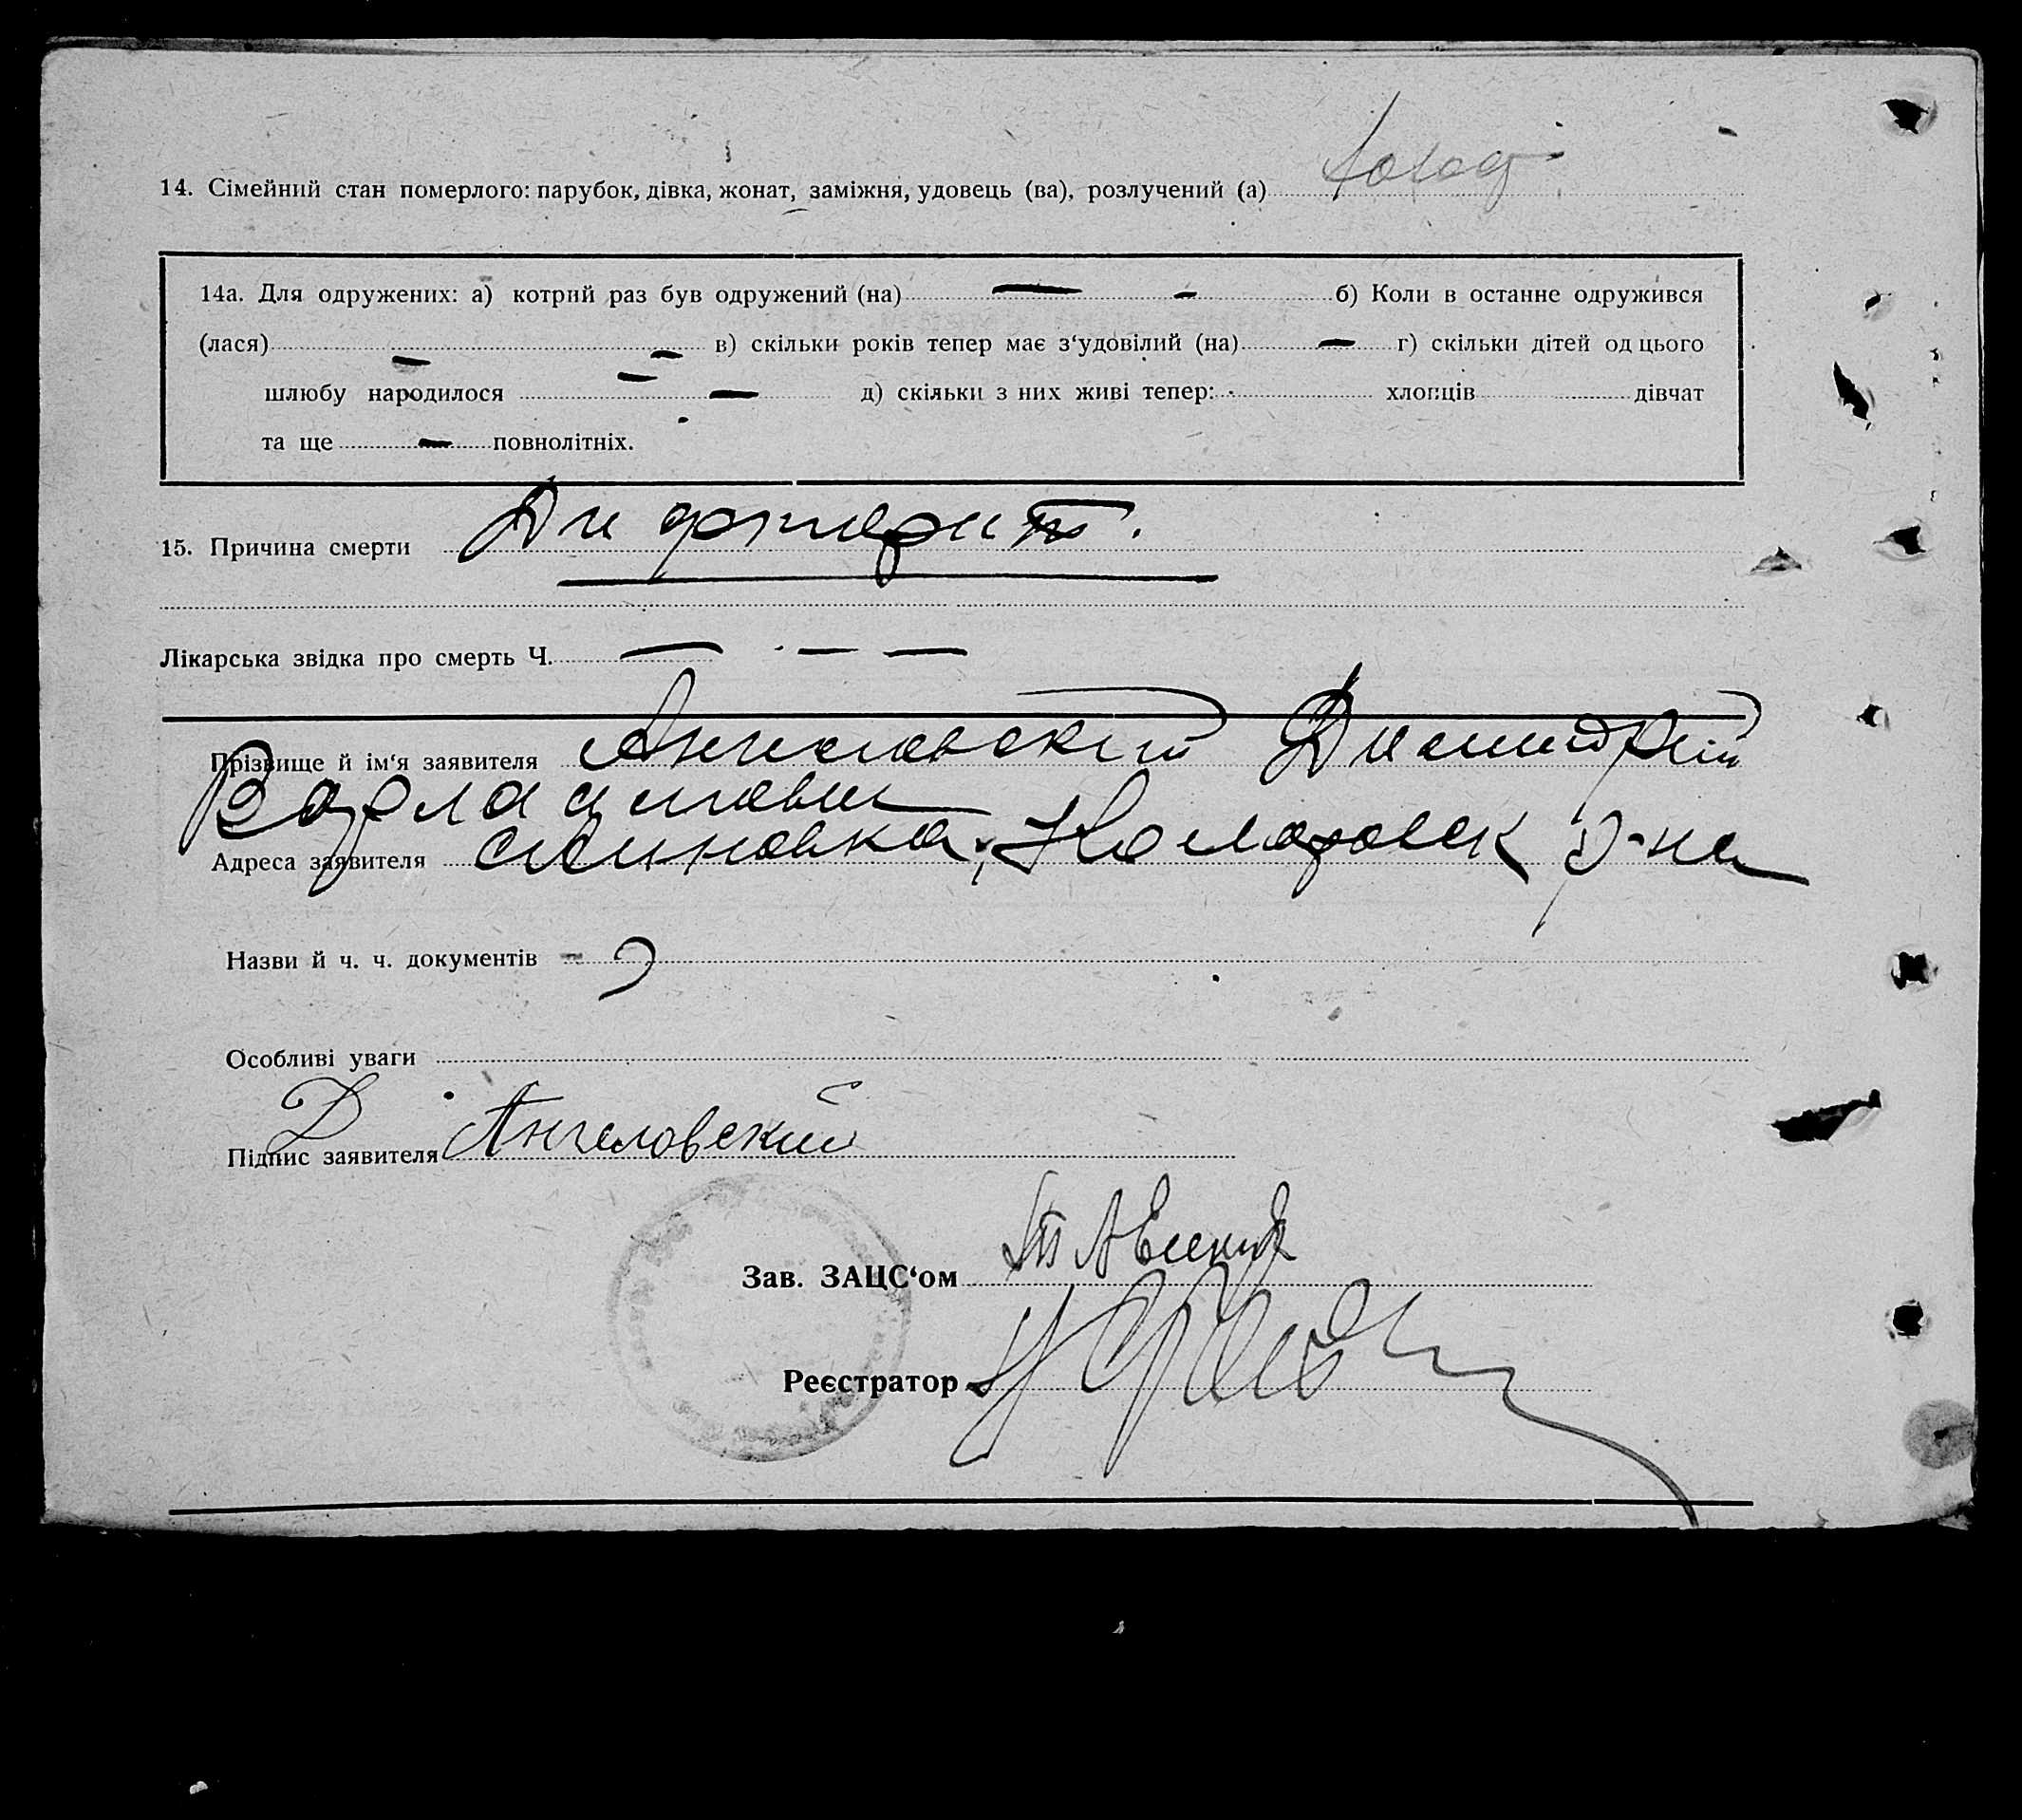 14. Сімейний стан померлого: парубок, дівка, жонат, заміжня, удовець (ва), розлучений (а)
14а. Для одружених: а) котрий раз був одружений (на) — - б) Коли в останнє одружився
(лася) — — в) скільки років тепер має з‘удовілий (на) — г) скільки дітей од цього
шлюбу народилося — — д) скільки з них живі тепер: хлопців дівчат
та ще — повнолітніх.
15. Причина смерти Дифтерит.
Лікарська звідка про смерть Ч. — — —
Прізвище й ім‘я заявителя Ангеловский Димитрий
Варлаамович
Адреса заявителя Комаровск р-на
Назви й ч. ч. документів -
Особливі уваги
Підпис заявителя Д Ангеловский
Зав. ЗАЦС‘ом
Реєстратор